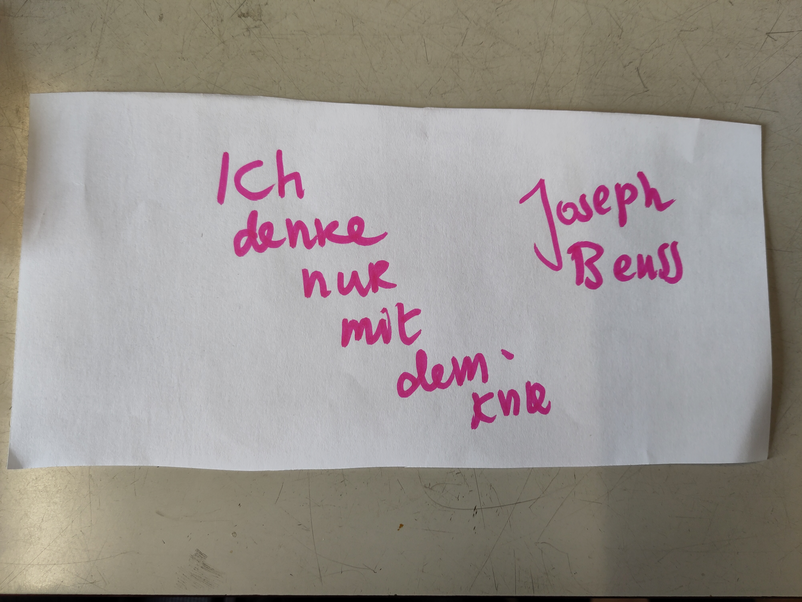 Ich
denke
nur
mit
dem
Knie
Joseph
Beuss